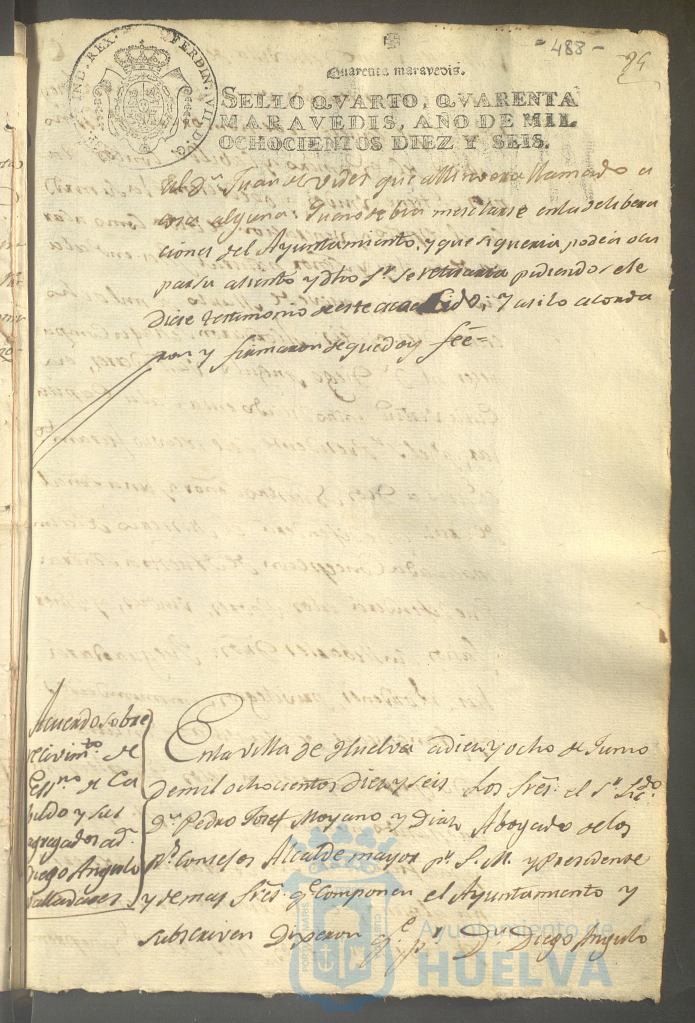 - 488 -
25
FERDIN. VII. D.G. IND. REX.
Quarenta maravedis.
SELLO QVARTO, QVARENTA
MARAVEDIS, AÑO DE MIL
OCHOCIENTOS DIEZ Y SEIS.
D.ⁿ Juan de Vides que llamado a
cosa alguna mesclarse en las delibera
ciones del Ayuntamiento, y que si queria podia ocu
par su asiento y dho S.ʳ se retiraria pidiendo se le
Diese testimonio de este acuerdo; Y asi lo acorda
ron y firmaron de que doy feé=
Acuerdo sobre
recivim.ᵗᵒ de
Ess.ⁿᵒ de Ca
bildo y sus
agregados a d.ⁿ
Diego Angulo
Valladares
En la villa de Huelva a diez y ocho de Junio
de mil ochocientos Diez y seis Los Sres. el S.ʳ Liz.ᵈᵒ
D.ⁿ Pedro Josef Moyano y Diaz Abogado de los
R.ˢ Consejos Alcalde mayor p.ʳ S. M. y Presidente
y demas Sres. q.ᵉ Componen el Ayuntamiento y
subscriven Dixeron q.ᵉ p.ʳ D.ⁿ Diego Angulo
Ayuntamiento de
HUELVA